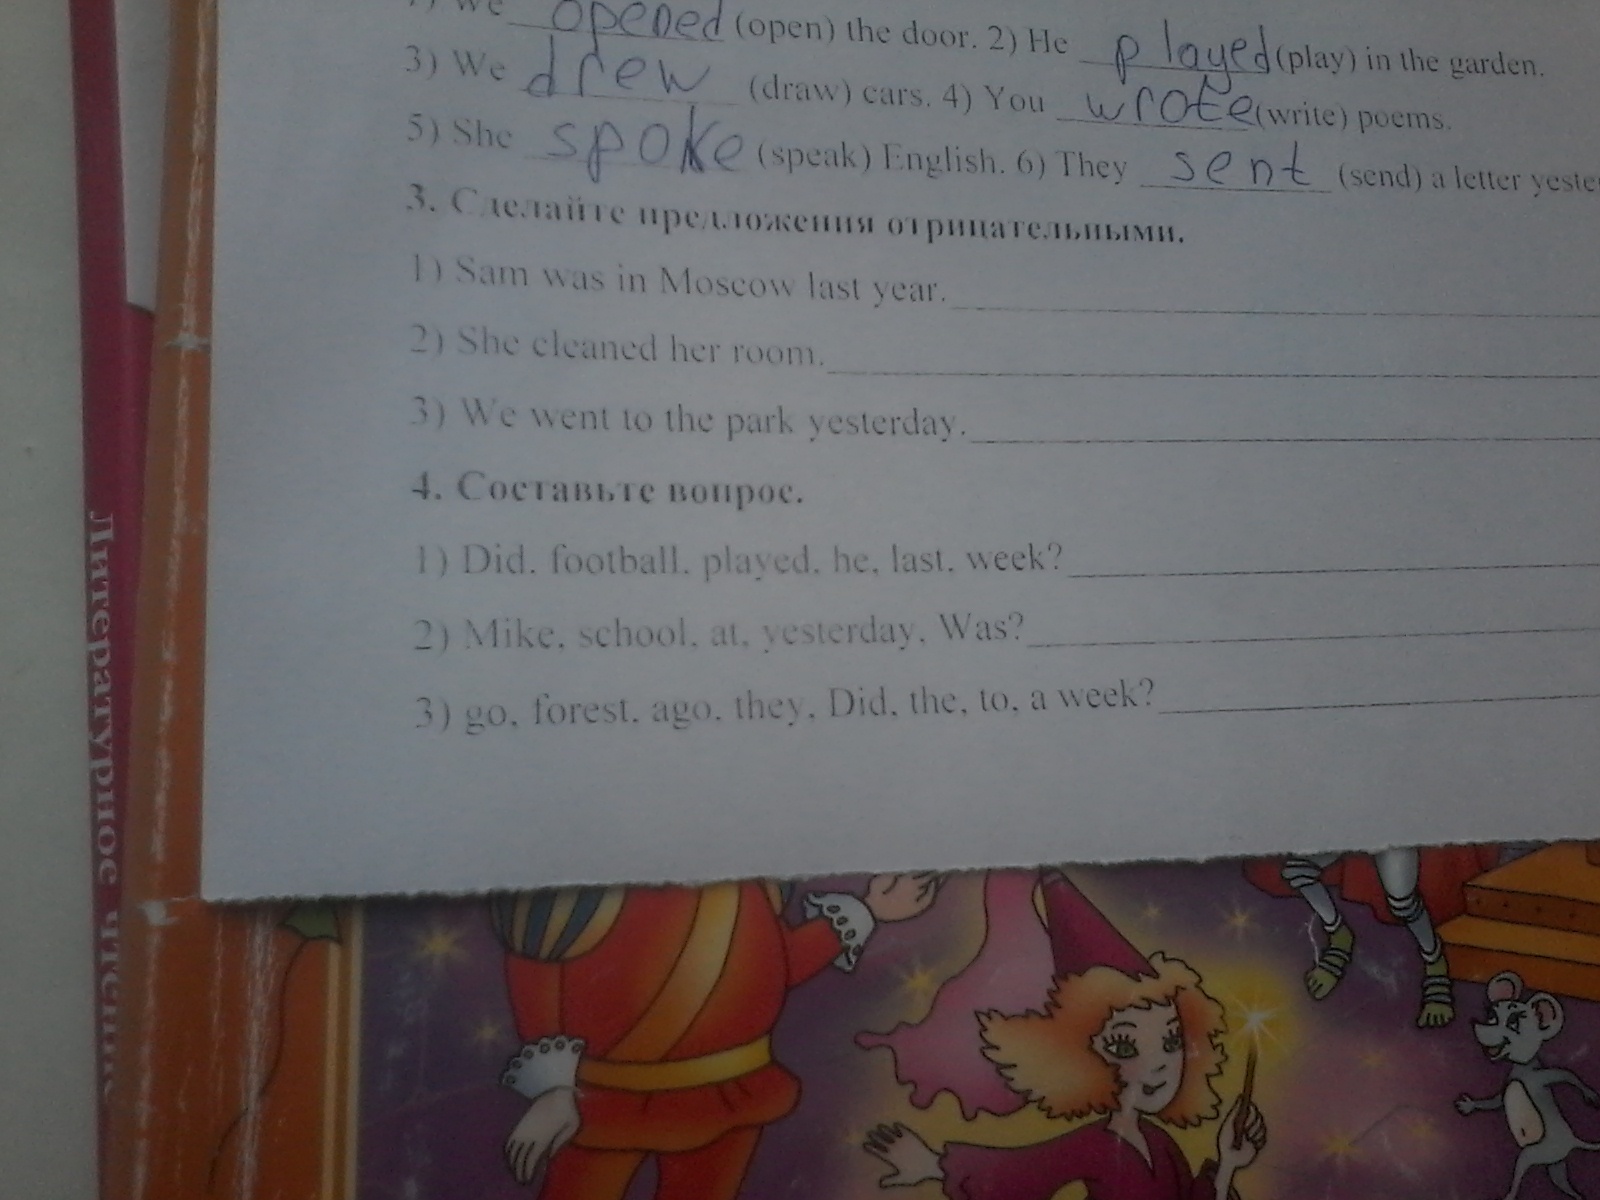 1) We opened (open) the door. 2) He played (play) in the garden.
3) We drew (draw) cars. 4) You wrote (write) poems.
5) She spoke (speak) English. 6) They sent (send) a letter yeste
3. Сделайте предложения отрицательными.
1) Sam was in Moscow last year.
2) She cleaned her room.
3) We went to the park yesterday.
4. Составьте вопрос.
1) Did, football, played, he, last, week?
2) Mike, school, at, yesterday, Was?
3) go, forest, ago, they, Did, the, to, a week?
Литературное чтение